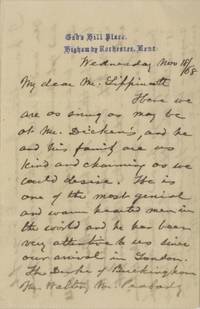 Gad's Hill Place,
Higham by Rochester, Kent.
Wednesday Nov 18/68
My dear Mr. Lippincott
Here we
are as snug as may be
at Mr. Dickens's, and he
and his family are as
kind and charming as we
could desire. He is
one of the most genial
and warm hearted men in
the world and he has been
very attentive to us since
our arrival in London.
The Duke of Buckingham
Mr. Walton, Mr. Peabody